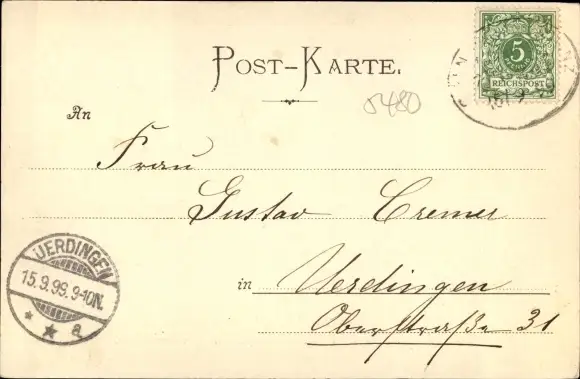 Post-Karte.
5
REICHSPOST
5480
An
Frau
Gustav Cremer
in Uerdingen
Oberstraße 31
UERDINGEN
15.9.99.9-10N.
a